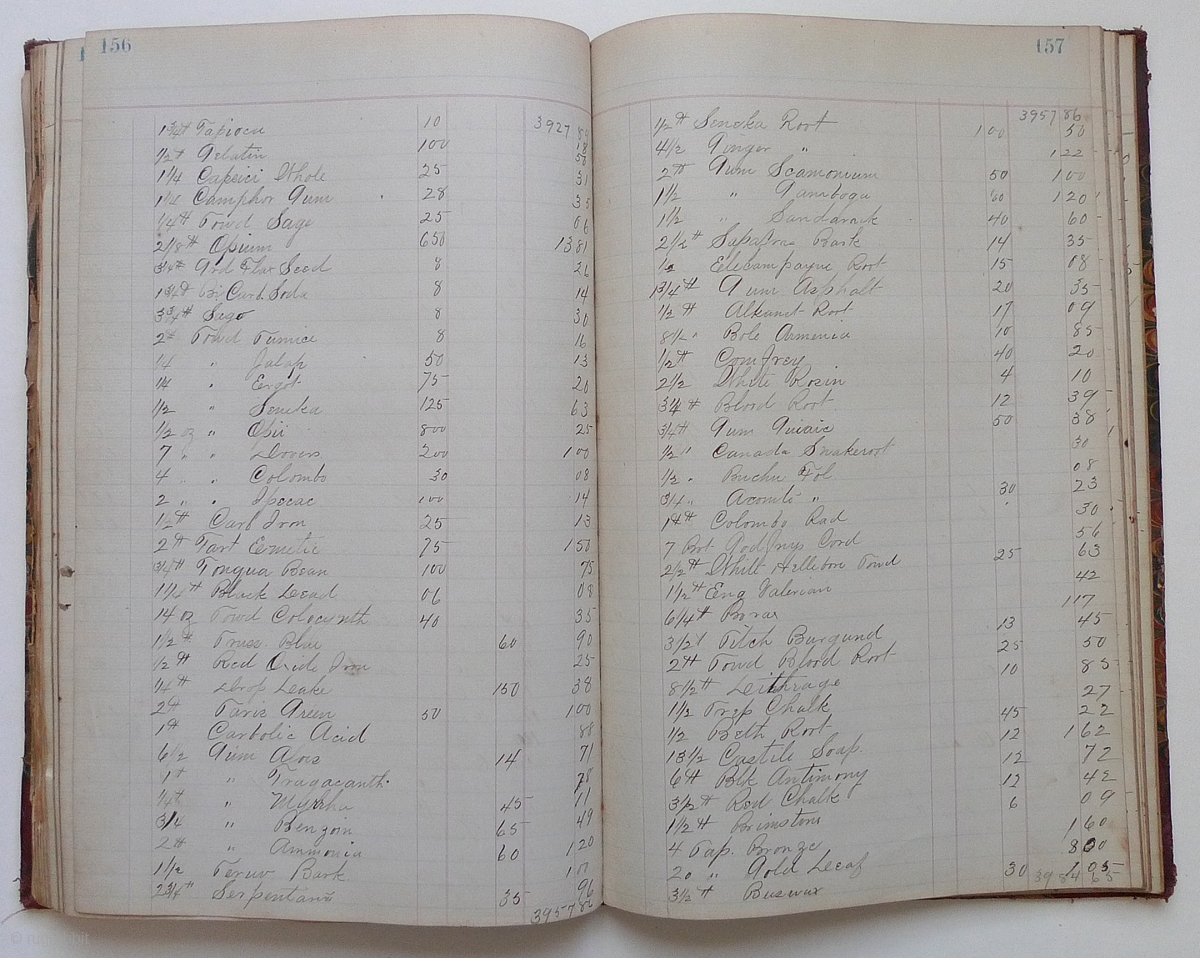 156
3927
1 3/4 # Tapioca 10 18
1/2 # Gelatin 100 50
1 1/4 Capsici Whole 25 31
1 1/4 Camphor Gum 28 35
1/4 # Powd Sage 25 06
2 1/8 # Opium 650 13 81
3 1/4 # Grd Flax Seed 8 26
1 3/4 # Bi Carb. Soda 8 14
3 3/4 # Sago 8 30
2 # Powd Pumice 8 16
1/4 " Jalap 50 13
1/4 " Ergot 75 20
1/2 " Seneka 125 63
1/2 oz " Opii 800 25
7 " " Dovers 200 100
4 " " Colombo 30 08
2 " " Ipecac 100 14
1/2 # Carb Iron 25 13
2 # Tart Eemetic 75 150
3/4 # Tongua Bean 100 75
1 1/4 # Black Lead 06 08
14 oz Powd Colocynth 40 35
1 1/2 # Pruss Blue 60 90
1/2 # Red Oxide Iron 25
1/4 # Drop Leake 150 38
2 # Paris Green 50 100
1 # Carbolic Acid 88
6 1/2 Gum Aloes 14 71
1 # " Tragacanth
1/4 # " Myrrha 45 11
3/4 " Benzoin 65 49
2 # " Ammonia 60 120
1 1/2 Peruv Bark
2 3/4 # Serpentaria 35 96
3957 86
157
3957 86
1/2 # Seneka Root 100 50
4 1/2 Ginger " 122
2 # Gum Scamonium 50 100
1 1/2 " Gamboga 80 120
1 1/2 " Sandarack 40 60
2 1/2 # Sasafras Bark 14 35
1/2 Elecampayne Root 15 08
1 3/4 # Gum Asphalt 20 35
1/2 # Alkanet Root 17 09
8 1/2 " Bole Armenia 10 85
1/2 # Comfrey 40 20
2 1/2 White Rosin 4 10
3 1/4 # Blood Root 12 39
3/4 # Gum Guiaic 50 38
1/2 " Canada Snakeroot 30
1/2 " Buchu Fol 08
3/4 " Aconiti " 30 23
1 # Colombo Rad 30
7 Bot Godfrys Cord 56
2 1/2 # White Hellebore Powd 25 63
1 1/2 # Eng Valerian 42
6 1/4 # Borax 117
3 1/2 # Pitch Burgund 13 45
2 # Powd Blood Root 25 50
8 1/2 # Leithrage 10 85
1 1/2 Prep Chalk 27
1/2 Beth Root 45 22
13 1/2 Castile Soap 12 162
6 # Blk Antimony 12 72
3 1/2 # Red Chalk 12 42
1 1/2 # Brimstone 6 09
4 Pap. Bronze 160
20 " Gold Leeaf 800
3 1/2 # Beeswax 30 1 05
3984 65